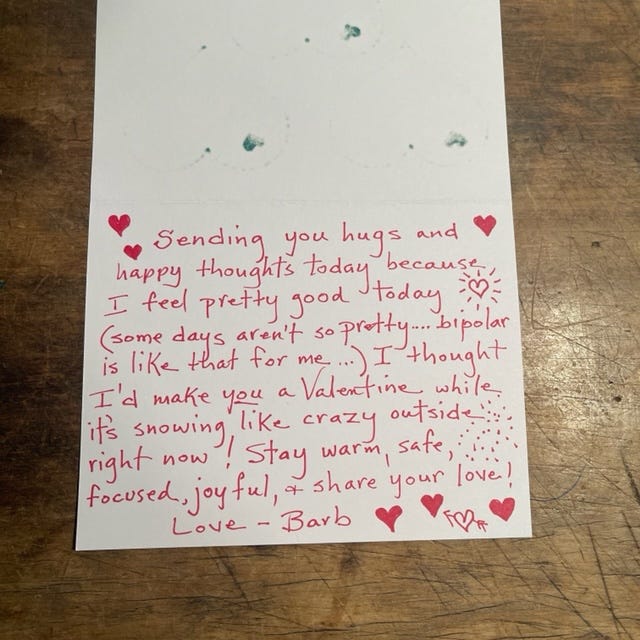 Sending you hugs and
happy thoughts today because
I feel pretty good today
(some days aren't so pretty.... bipolar
is like that for me ...) I thought
I'd make you a Valentine while
it's snowing like crazy outside
right now! Stay warm, safe,
focused, joyful, & share your love!
Love - Barb